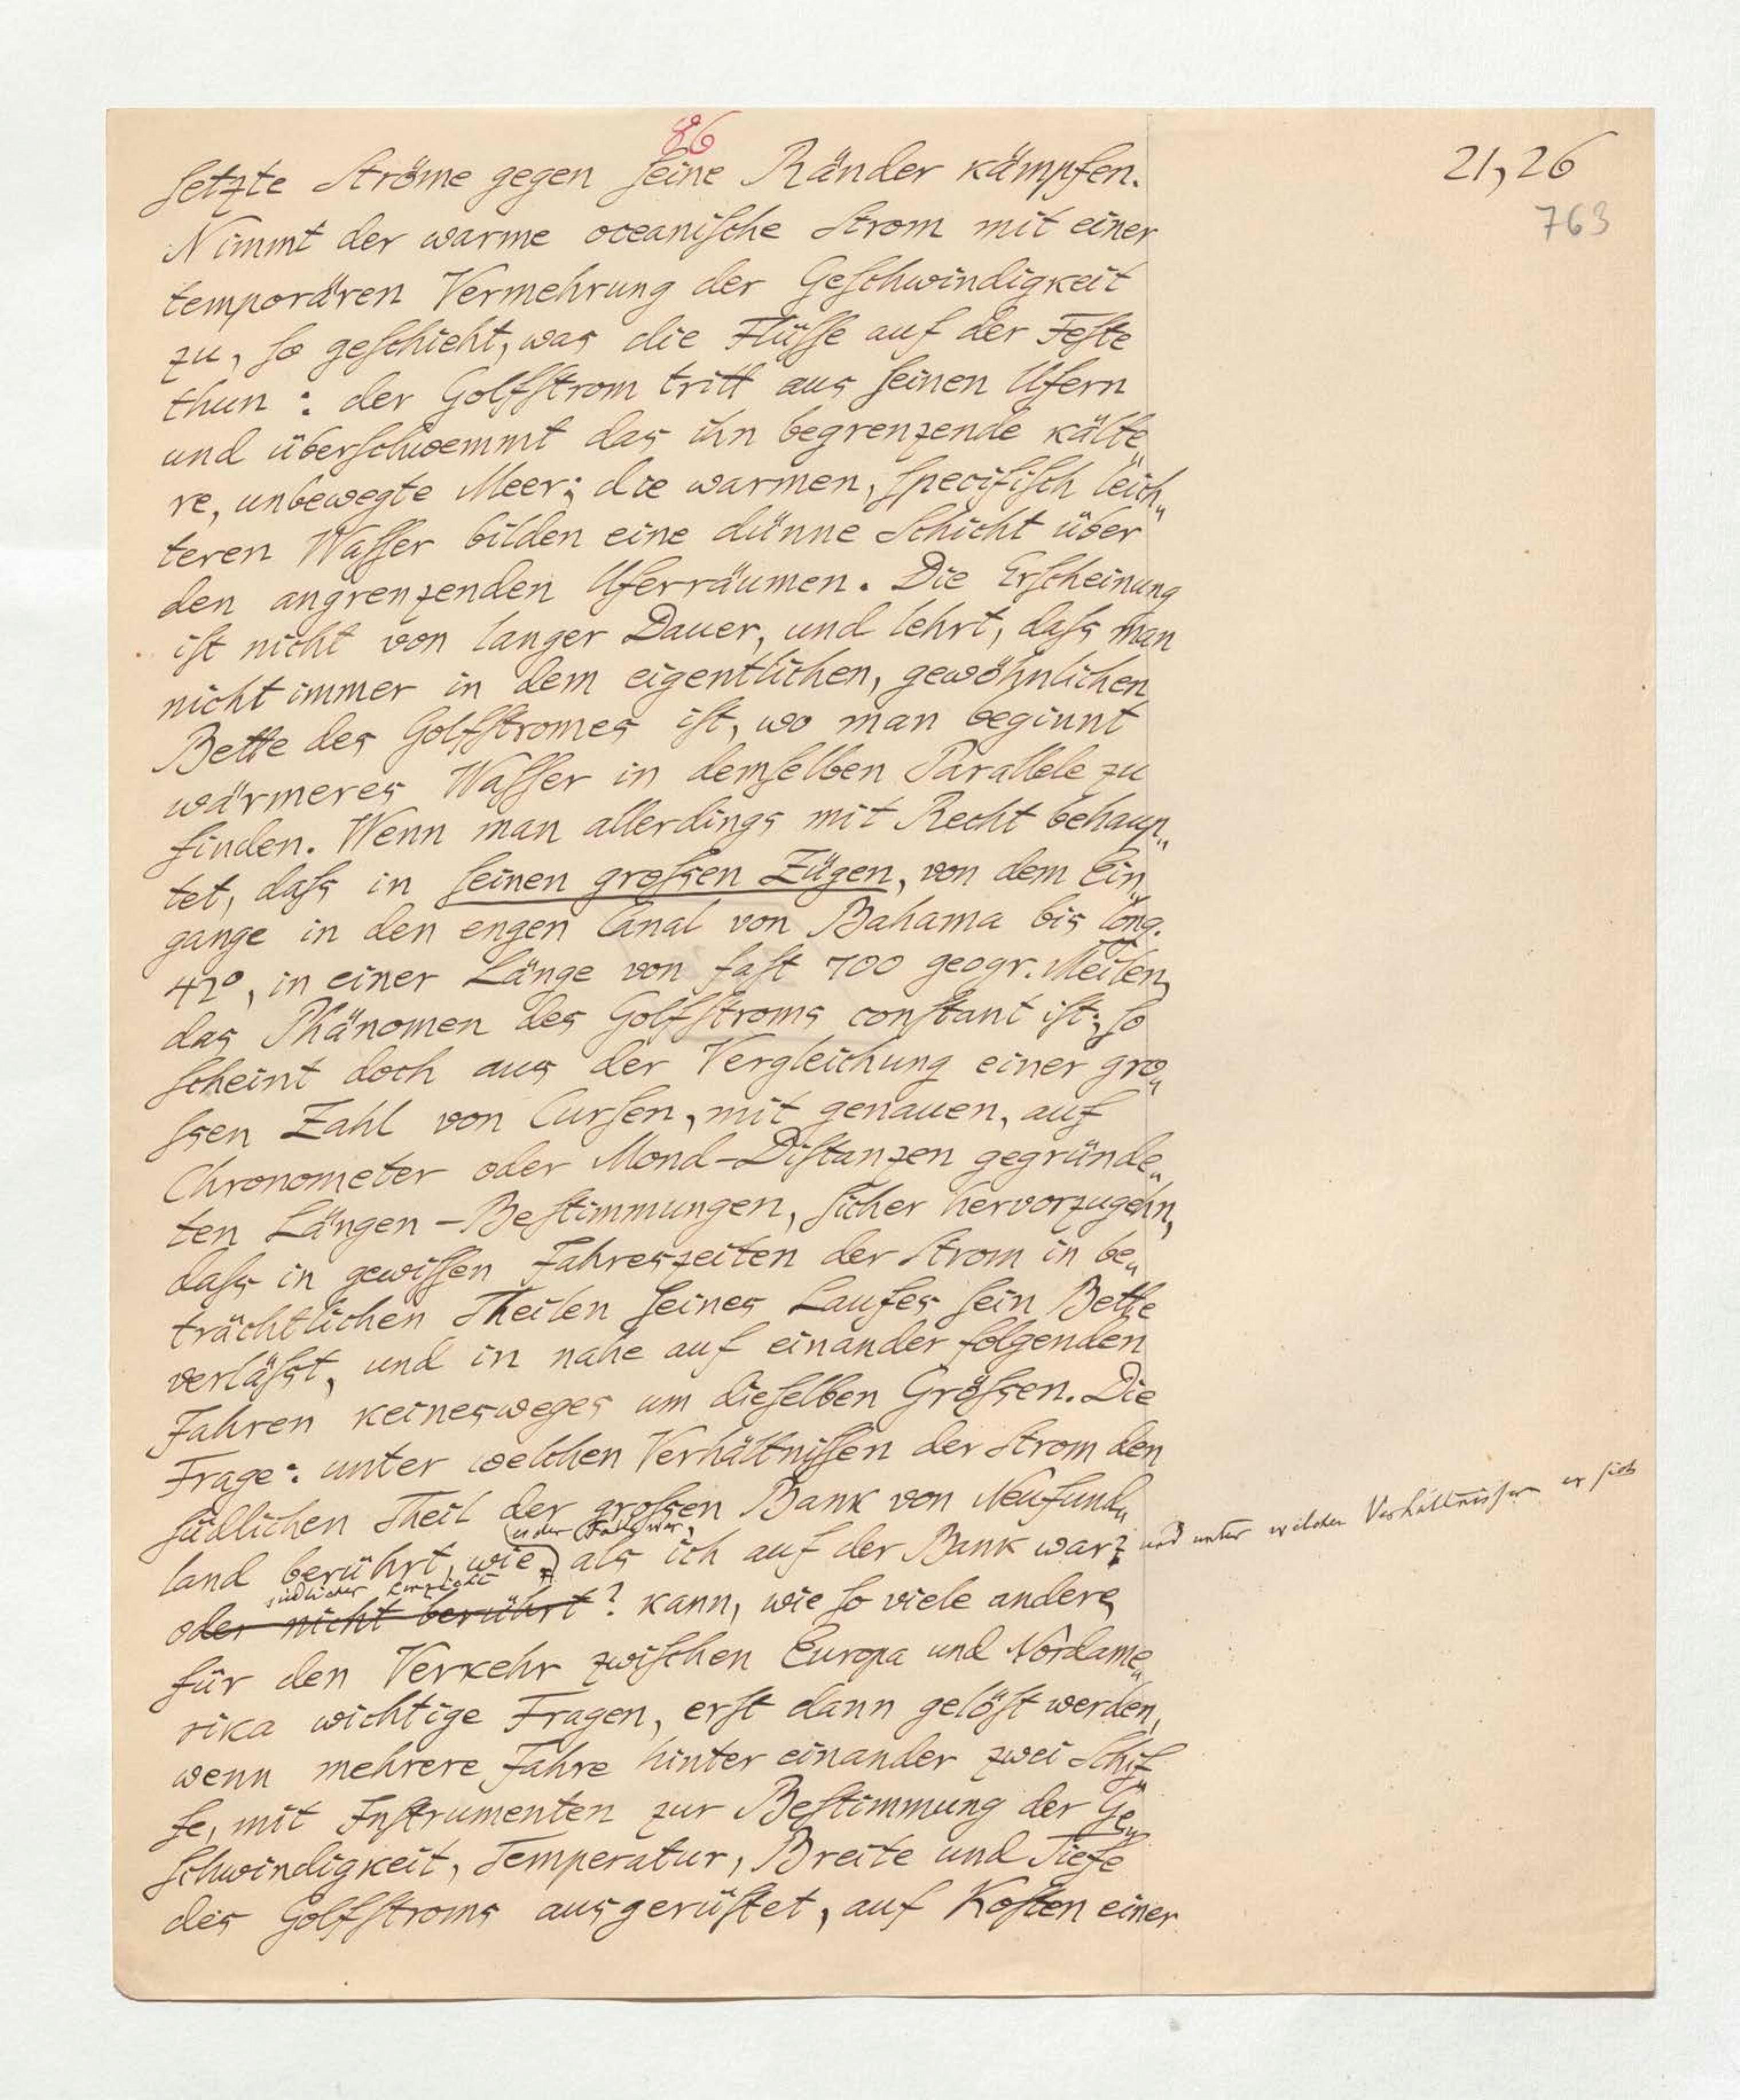 86
21,26
763
setzte Ströme gegen seine Ränder kämpfen.
Nimmt der warme oceanische Strom mit einer
temporären Vermehrung der Geschwindigkeit
zu, so geschieht, was die Flüsse auf der Feste
thun: der Golfstrom tritt aus seinen Ufern
und überschwemmt das ihn begrenzende kälte„
re, unbewegte Meer; die warmen, specifisch leich„
teren Wasser bilden eine dünne Schicht über
den angrenzenden Uferräumen. Die Erscheinung
ist nicht von langer Dauer, und lehrt, dass man
nicht immer in dem eigentlichen, gewöhnlichen
Bette des Golfstromes ist, wo man beginnt
wärmeres Wasser in demselben Parallele zu
finden. Wenn man allerdings mit Recht behaup„
tet, dass in seinen grossen Zügen, von dem Ein„
gange in den engen Canal von Bahama bis long.
42°, in einer Länge von fast 700 geogr. Meilen,
das Phänomen des Golfstroms constant ist; so
scheint doch aus der Vergleichung einer gro„
ssen Zahl von Cursen, mit genauen, auf
Chronometer oder Mond-Distanzen gegründe„
ten Längen-Bestimmungen, sicher hervorzugehn,
dass in gewissen Jahreszeiten der Strom in be„
trächtlichen Theilen seines Laufes sein Bette
verlässt, und in nahe auf einander folgenden
Jahren keinesweges um dieselben Grössen. Die
Frage: unter welchen Verhältnissen der Strom den
südlichen Theil der grossen Bank von Neufund„
es der Fall war,
land berührt, wie als ich auf der Bank war? und unter welchen Verhältnissen er sich
südlicher
oder nicht berührt? kann, wie so viele andere,
für den Verkehr zwischen Europa und Nordame„
rika wichtige Fragen, erst dann gelöst werden,
wenn mehrere Jahre hinter einander zwei Schif„
fe, mit Instrumenten zur Bestimmung der Ge„
schwindigkeit, Temperatur, Breite und Tiefe
des Golfstroms ausgerüstet, auf Kosten einer